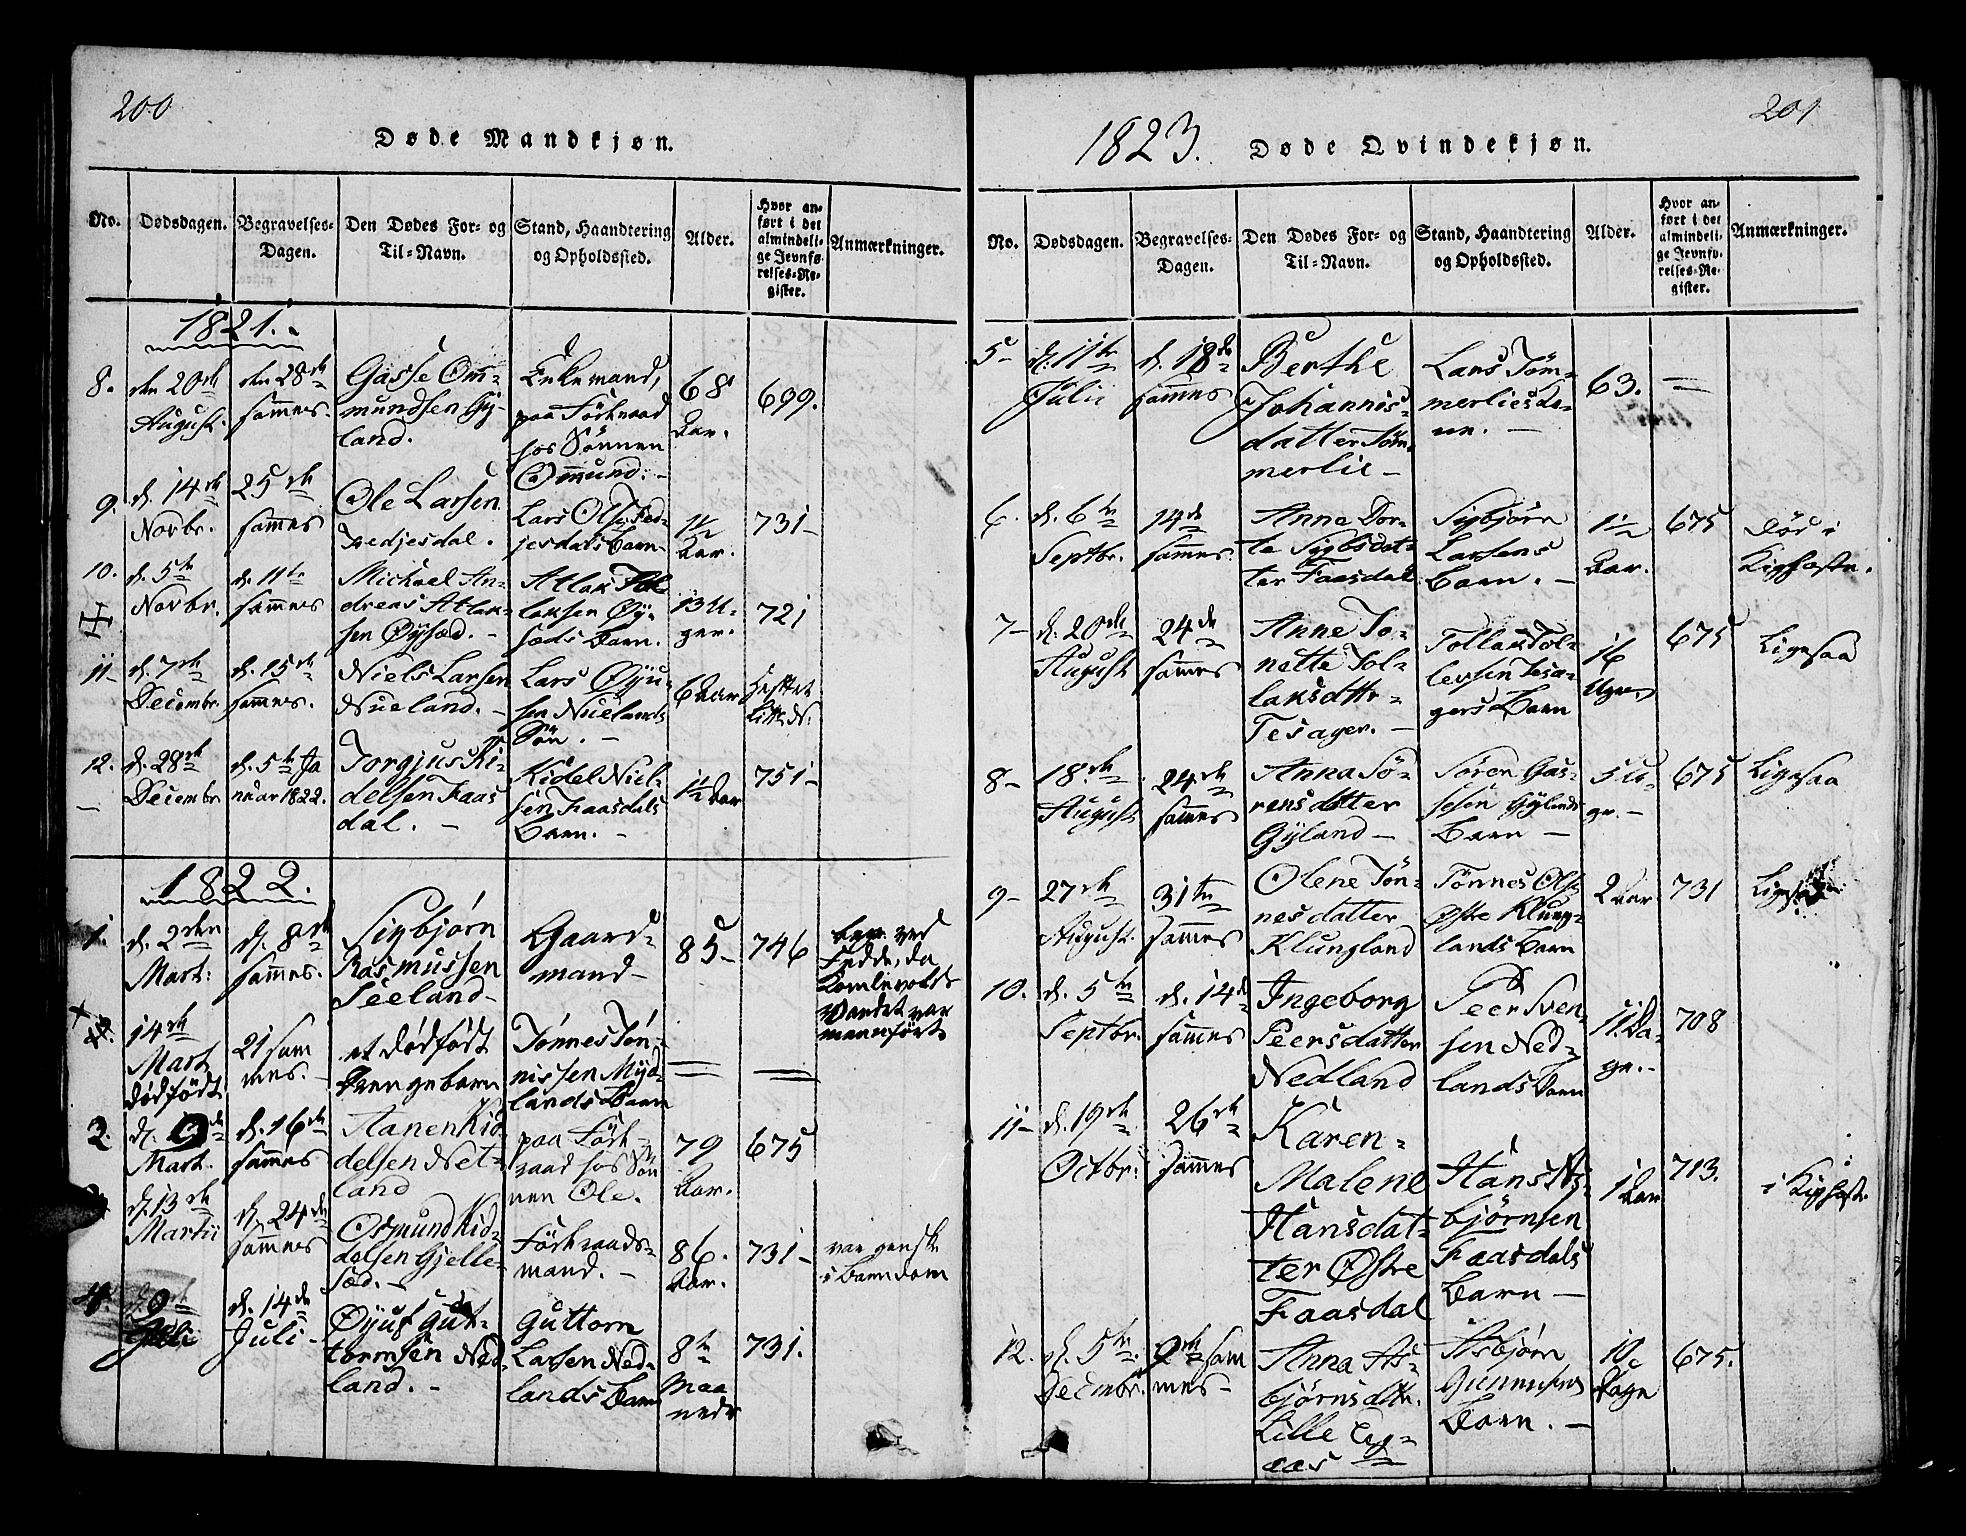 200
Døde Mandkjøn.
No.
Dødsdagen.
Begravelses-
Dagen.
Den Dødes For- og
Til-Navn.
Stand, Haandtering
og Opholdssted.
Alder.
Hvor an-
ført i det
almindeli-
ge Jevnfø-
relses-Re-
gister.
Anmærkninger.
1821.
8.
den 20de
August.
den 28de
sammes.
Gasse Om-
mundsen Gy-
land.
Enkemand,
paa Föderaad
hos Sönnen
Ommund. -
68
Aar.
699.
9.
d. 14de
Novbr.
25de
sammes
Ole Larsen
Fedjesdal.
Lars Ols. Fed-
jesdals Barn
1½
Aar.
731-
10.
d. 5te
Novbr.
d. 11te
sammes
Michael An-
dreas Atlak-
sen Øysæd. -
Atlak
laksen Øy-
sæds Barn.
13 U-
ger.
721
11-
d. 7de
Decembr.
d. 15de
sammes.
Niels Larsen
Nueland. -
Lars Øyu-
sen Nuelands
Søn. -
6 Aar
12.
d. 28de
Decembr
d. 5te Ja
nuar 1822.
Torgjus Ki-
delsen Faas
dal. -
Kidel Niel-
sen Faasdals
Barn. -
1½ Aar
751-
1822.
1.
d. 2den
Mart:
d. 8de
sammes.
Sigbjørn
Rasmussen
Seeland-
Gaard-
mand-
85-
746
ved
Fedde, da
Vandet var
14de
Mart
dødfødt
21 sam
mes. -
et dødfødt
Drengebarn
Tønnes Tøn-
nissen Myd-
lands Barn
2.
d. 9de
Mart.
d. 16de
sammes
Aanen Kid
delsen Net-
land
paa Föde-
raad hos Søn
nen Ole.
79
Aar.
675
d. 13de
Martii
d. 24de
sammes
Osmund Kid-
delsen Gjelle-
sæd. -
Föderaads-
mand. -
86.
Aar.
731-
var ganske
i Barndom
4.
d. 9de
Juli
d. 14de
Juli -
Øyuf Gut-
tormsen Ned-
land. -
Guttorm
Larsen Ned-
lands Barn
8te
Maa
neder
731.
201
1823. Døde Qvindekjøn.
No.
Dødsdagen.
Begravelses-
Dagen.
Den Dødes For- og
Til-Navn.
Stand, Haandtering
og Opholdssted.
Alder.
Hvor an-
ført i det
almindeli-
ge Jevnfø-
relses-Re-
gister.
Anmærkninger.
5-
d. 11te
Julii
d. 18de
sammes
Berthe
Johannis-
datter Töm-
merlie -
Lars Töm-
merlies Ko-
ne. -
63.
6.
d. 6te
Septbr.
14de
sammes
Anne Dor-
te Sigbsdat-
ter Faasdal
Sigbjørn
Larsens
Barn. -
1½
Aar.
675
Død i
Kighoste.
7-
d. 20de
August
24de
sammes
Anne To-
nette Tol-
laksdttr-
Tesager. -
Tollak Tol-
levsen Tesa-
gers Barn
16
Uger
675
Ligesaa
8-
18de
August
24de
sammes
Anna Sö-
rensdatter
Gyland -
Søren Gas-
sesen Gylands
Barn -
5 U-
ger. -
675
Ligesaa
9-
27de
August.
31te
sammes
Olene Tön-
nesdatter
Klungland
Tönnes Ols.
Østre Klung-
lands Barn
2 Aar
731
Ligesaa
10.
d. 5te
Septbr.
d. 14de
sammes
Ingeborg
Peersdatter
Nedland
Peer Sven-
sen Ned-
lands Barn
11 Da-
ge. -
708
11-
d. 19de
Octbr:
26de
sammes
Karen-
Malene
Hansdat-
ter Østre
Faasdal
Hans As-
bjørnsen
Faasdals
Barn -
1 Aar
713.
i Kighoste
12.
d. 5te
Decembr.
9de sam
mes-
Anna As-
bjørnsdttr.
Lille Eg-
aas
Asbjørn
Gunnufsens
Barn. -
10
Dage
675.